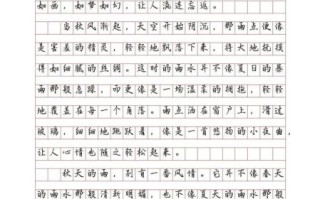 如画，如梦如幻，让人流连忘返。
当秋风渐起，天空开始阴沉，那雨点便像
是害羞的精灵，轻轻地飘落下来，将大地抚摸
得如细腻的丝绸。这时的雨水并不像夏日的暴
雨那般急躁，而更像是一场温柔的拥抱，轻轻
地覆盖在每一个角落。雨点洒在窗户上，滑过
玻璃，细细地跳跃着，像是一首悠扬的小夜曲，
让人心情也随之轻松起来。
秋天的雨，别有一番风情。它并不像春天
的雨水那般清新明媚，也不像夏天的雨水那般